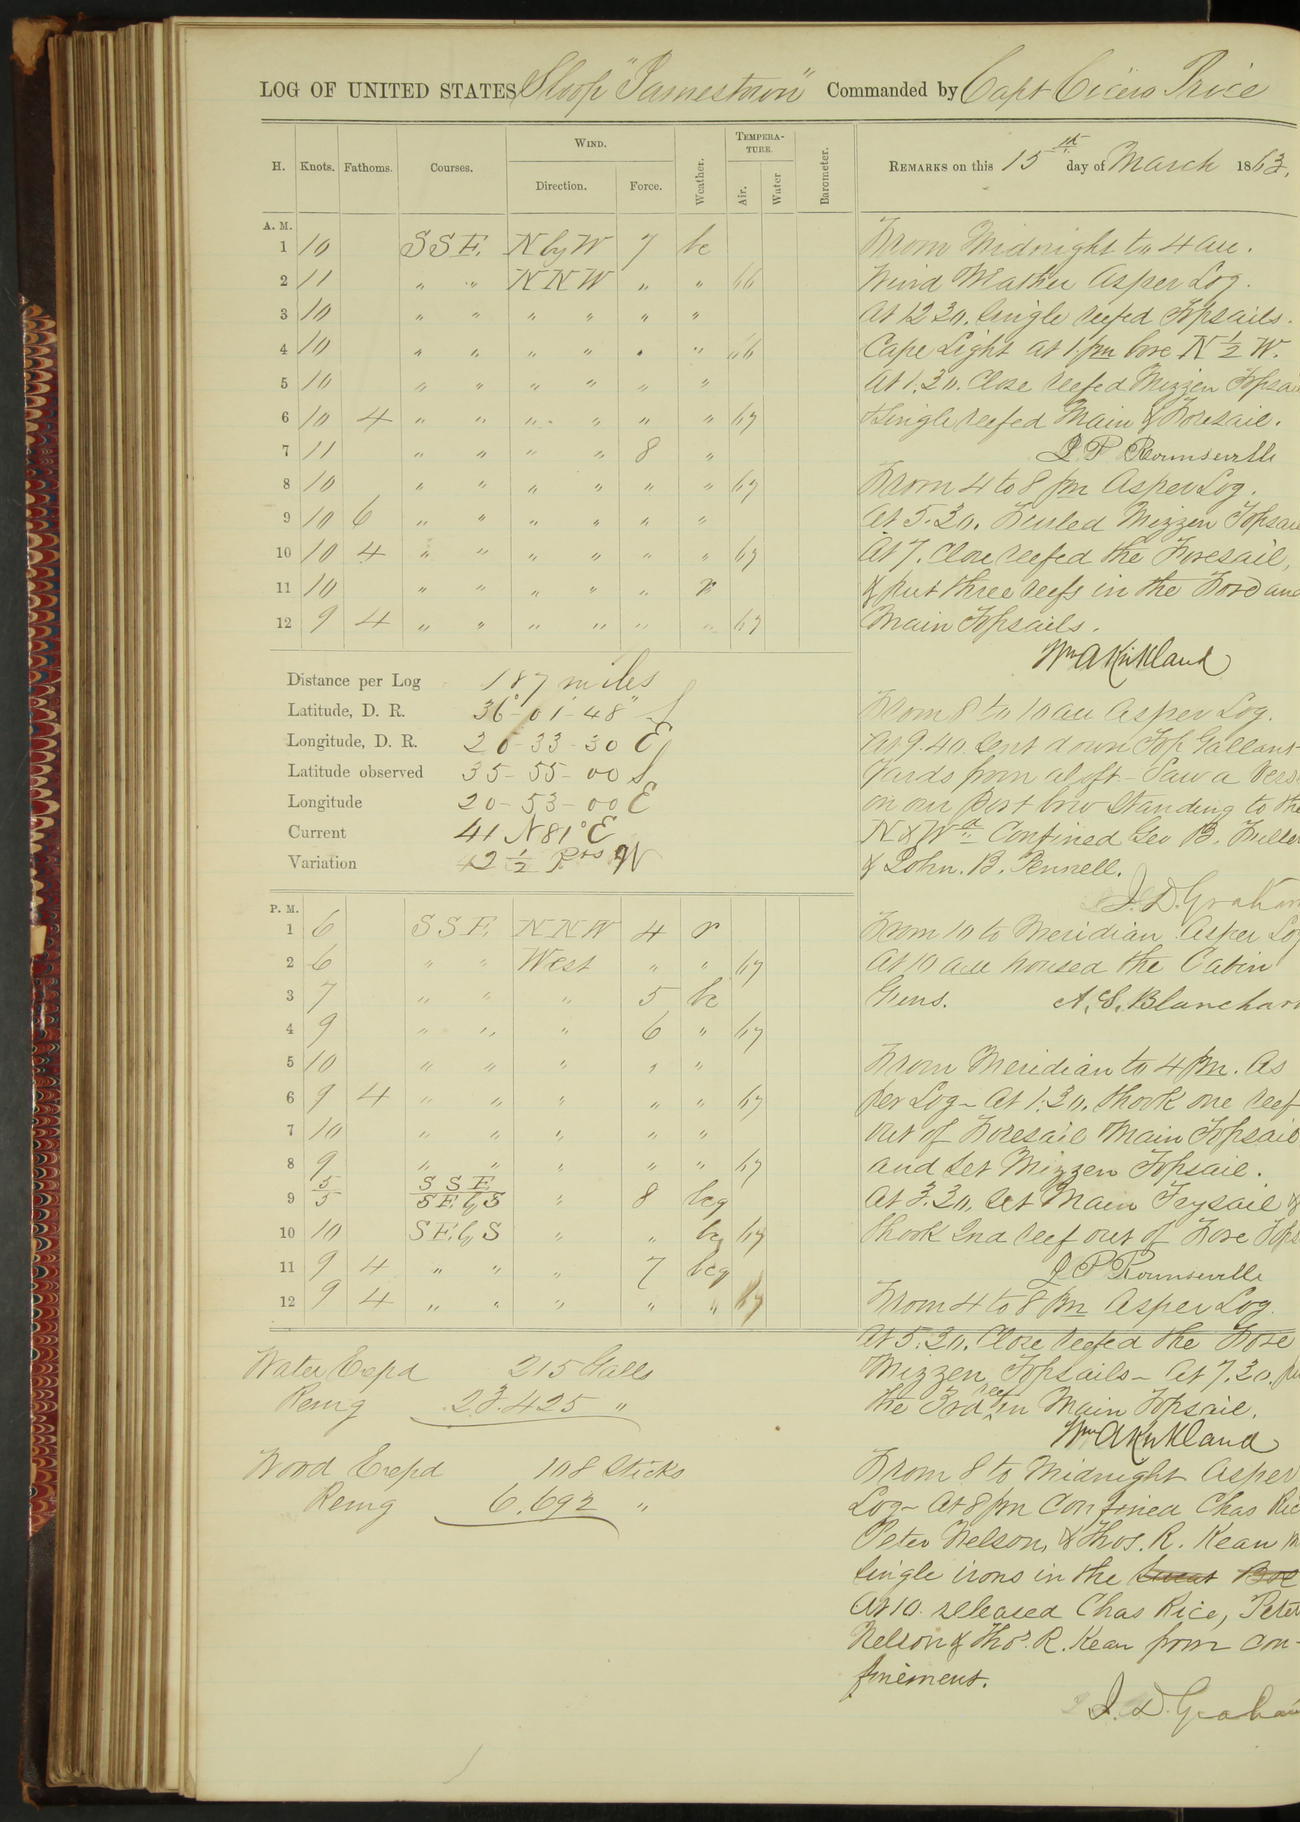 LOG OF UNITED STATES Sloop "Jamestown" Commanded by Capt Cicero Price
H. Knots. Fathoms. Courses. WIND. Direction. Force. Weather. TEMPERATURE. Air. Water Barometer. REMARKS on this 15th day of March 1863,
A. M.
1 10 SSE. N by W 7 bc
2 11 " " NNW " " 66
3 10 " " " " " "
4 10 " " " " " " 66
5 10 " " " " " "
6 10 4 " " " " " " 67
7 11 " " " " 8 "
8 10 " " " " " " 67
9 10 6 " " " " " "
10 10 4 " " " " " " 67
11 10 " " " " " r
12 9 4 " " " " " " 67
Distance per Log 187 miles
Latitude, D. R. 36°-01'-48" S
Longitude, D. R. 20-33-30 E
Latitude observed 35-55-00 S
Longitude 20-53-00 E
Current 41 N 81° E
Variation 2 1/2 Pts W
P. M.
1 6 SSE. NNW 4 r
2 6 " " West " " 67
3 7 " " " 5 bc
4 9 " " " 6 " 67
5 10 " " " " "
6 9 4 " " " " " 67
7 10 " " " " "
8 9 " " " " " 67
9 5/5 SSE / SE by S " 8 bcq
10 10 SE by S " " bq 67
11 9 4 " " " 7 bcq
12 9 4 " " " " " 67
Water Expd 215 Galls
Remg 23.425 "
Wood Expd 108 Sticks
Remg 6.692 "
From Midnight to 4 am.
Wind Weather As per Log.
At 12 30. Single reefed Topsails.
Cape Light at 1 pm bore N 1/2 W.
At 1.30. Close reefed Mizzen Topsa
& Single reefed Main & Foresail.
J P Rounseville
From 4 to 8 pm As per Log.
At 5.30. Furled Mizzen Topsai
At 7. Close reefed the Foresail,
& put three reefs in the Fore and
Main Topsails.
Wm A Kirkland
From 8 to 10 am As per Log.
At 9.40. Sent down Top Gallant
Yards from aloft - Saw a Vess
on our Port bow Standing to the
N & Wd Confined Geo B. Fuller
& John. B. Pennell.
J. D. Graham
From 10 to Meridian As per Log
At 10 am housed the Cabin
Guns. A. S. Blanchar
From Meridian to 4 Pm. As
per Log - At 1.30. Shook one reef
out of Foresail Main Topsail
and Set Mizzen Topsail.
At 3.30. Set Main Trysail &
Shook 2nd reef out of Fore Tops
J P Rounseville
From 4 to 8 Pm As per Log.
At 5.30. Close reefed the Fore
Mizzen Topsails - At 7.30. pu
the 3rd reef in Main Topsail.
Wm A Kirkland
From 8 to Midnight As per
Log - At 8 pm Confined Chas Ric
Peter Nelson, & Thos. R. Kean in
Single irons in the Sweat Box
At 10. released Chas Rice, Peter
Nelson & Thos. R. Kean from Con-
finement.
J. D. Graham